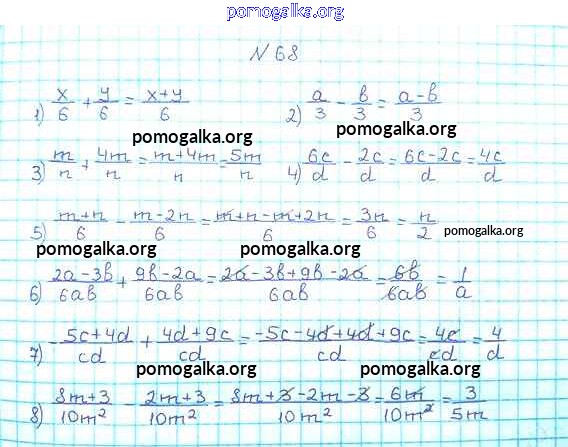 pomogalka.org
N 68
1) x/6 + y/6 = x+y/6 2) a/3 - b/3 = a-b/3
pomogalka.org pomogalka.org
3) m/n + 4m/n = m+4m/n = 5m/n 4) 6c/d - 2c/d = 6c-2c/d = 4c/d
5) m+n/6 - m-2n/6 = m+n-m+2n/6 = 3n/6 = n/2 pomogalka.org
pomogalka.org pomogalka.org
6) 2a-3b/6ab + 9b-2a/6ab = 2a-3b+9b-2a/6ab = 6b/6ab = 1/a
7) - 5c+4d/cd + 4d+9c/cd = -5c-4d+4d+9c/cd = 4c/cd = 4/d
pomogalka.org pomogalka.org
8) 8m+3/10m² - 2m+3/10m² = 8m+3-2m-3/10m² = 6m/10m² = 3/5m